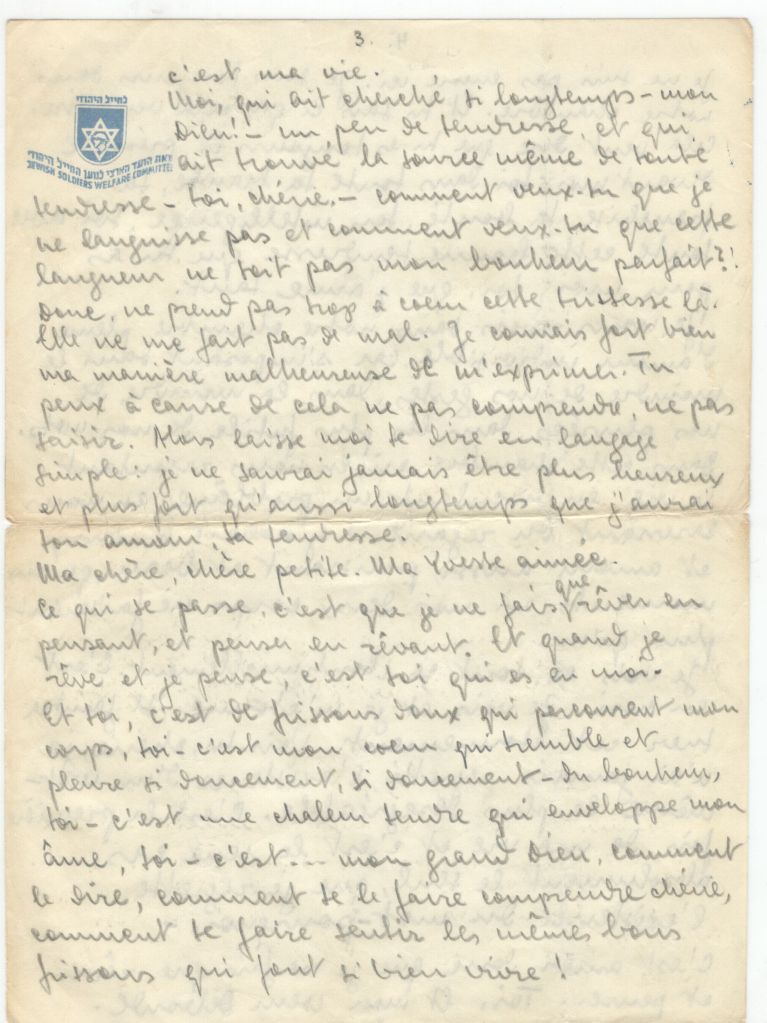 3.
c'est ma vie.
לחייל היהודי
Moi, qui ait cherché si longtemps – mon
Dieu! – un peu de tendresse, et qui
מאת הועד הארצי למען החייל היהודי
JEWISH SOLDIERS WELFARE COMMITTEE
ait trouvé la source même de toute
tendresse – toi, chérie, – comment veux-tu que je
ne languisse pas et comment veux-tu que cette
langueur ne soit pas mon bonheur parfait?!
Donc, ne prend pas trop à coeur cette tristesse là.
Elle ne me fait pas de mal. Je connais fort bien
ma manière malheureuse de m'exprimer. Tu
peux à cause de cela ne pas comprendre, ne pas
saisir. Alors laisse moi te dire en langage
simple: je ne saurai jamais être plus heureux
et plus fort qu'aussi longtemps que j'aurai
ton amour, ta tendresse.
Ma chère, chère petite. Ma Yvette aimée.
Ce qui se passe, c'est que je ne fais que rêver en
pensant, et penser en rêvant. Et quand je
rêve et je pense, c'est toi qui es en moi.
Et toi, c'est de frissons doux qui parcourent mon
corps, toi – c'est mon coeur qui tremble et
pleure si doucement, si doucement – du bonheur,
toi – c'est une chaleur tendre qui enveloppe mon
âme, toi – c'est... mon grand Dieu, comment
le dire, comment te le faire comprendre chérie,
comment te faire sentir les mêmes bons
frissons qui font si bien vivre!